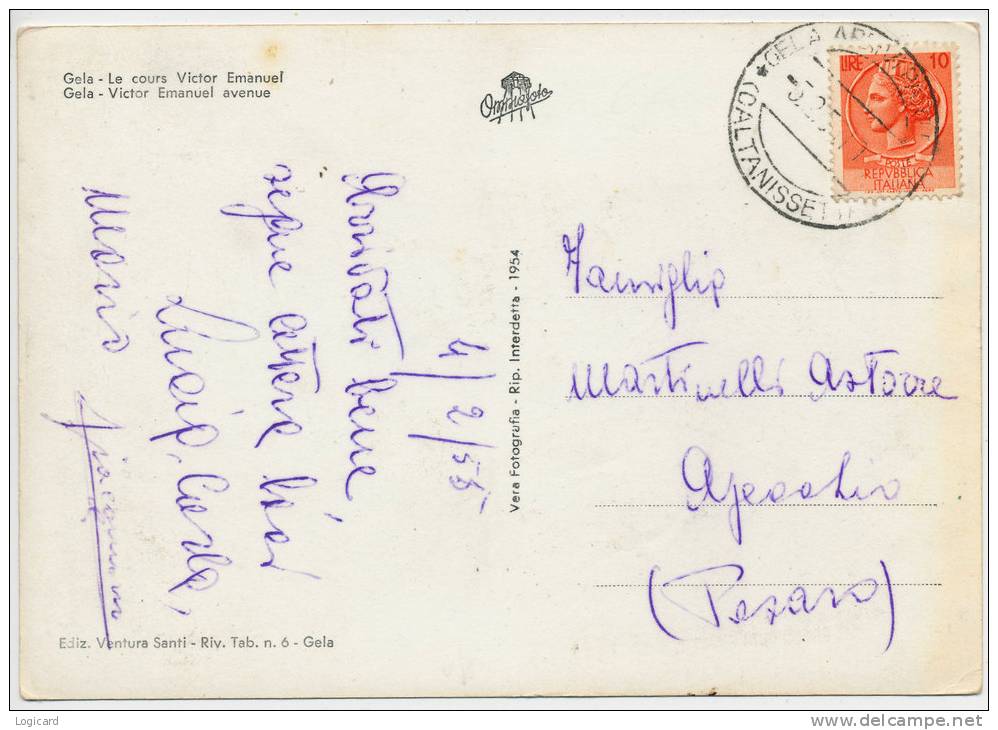 Gela - Le cours Victor Emanuel
Gela - Victor Emanuel avenue
Omniafoto
GELA
(CALTANISSETTA
LIRE 10
POSTE
REPVBBLICA
ITALIANA
4/2/55
Arrivati bene,
segue
Lucia, Carla,
Maria
Vera Fotografia - Rip. Interdetta - 1954
Famiglia
Martinelli Astorre
Apecchio
(Pesaro)
Ediz. Ventura Santi - Riv. Tab. n. 6 - Gela
Logicard
www.delcampe.net